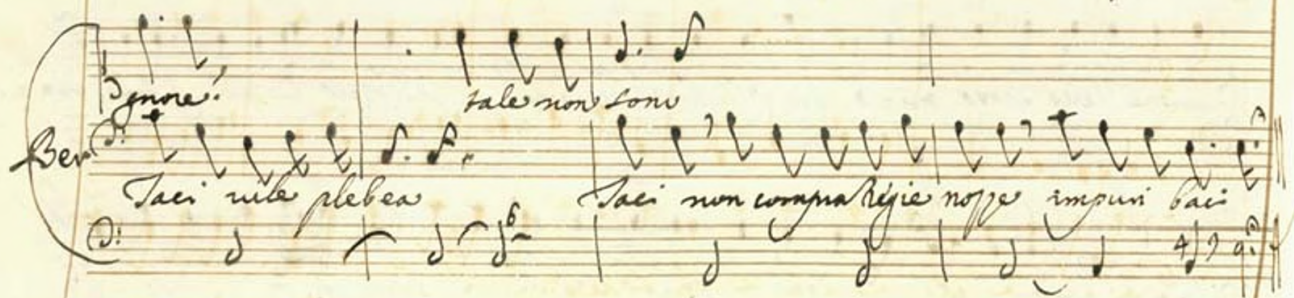 ignore. tale non sono
Ber Taci vile plebea Taci non compra Regie nozze impuri baci
6 4